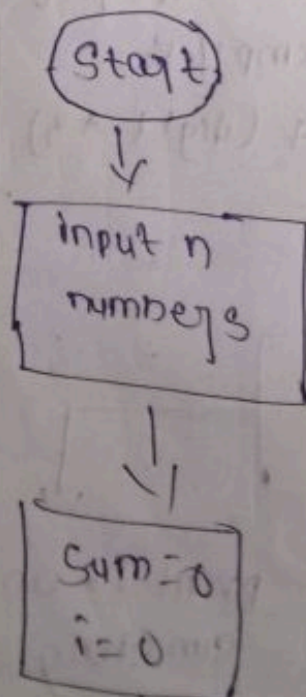 Start
input n
numbers
Sum=0
i=0